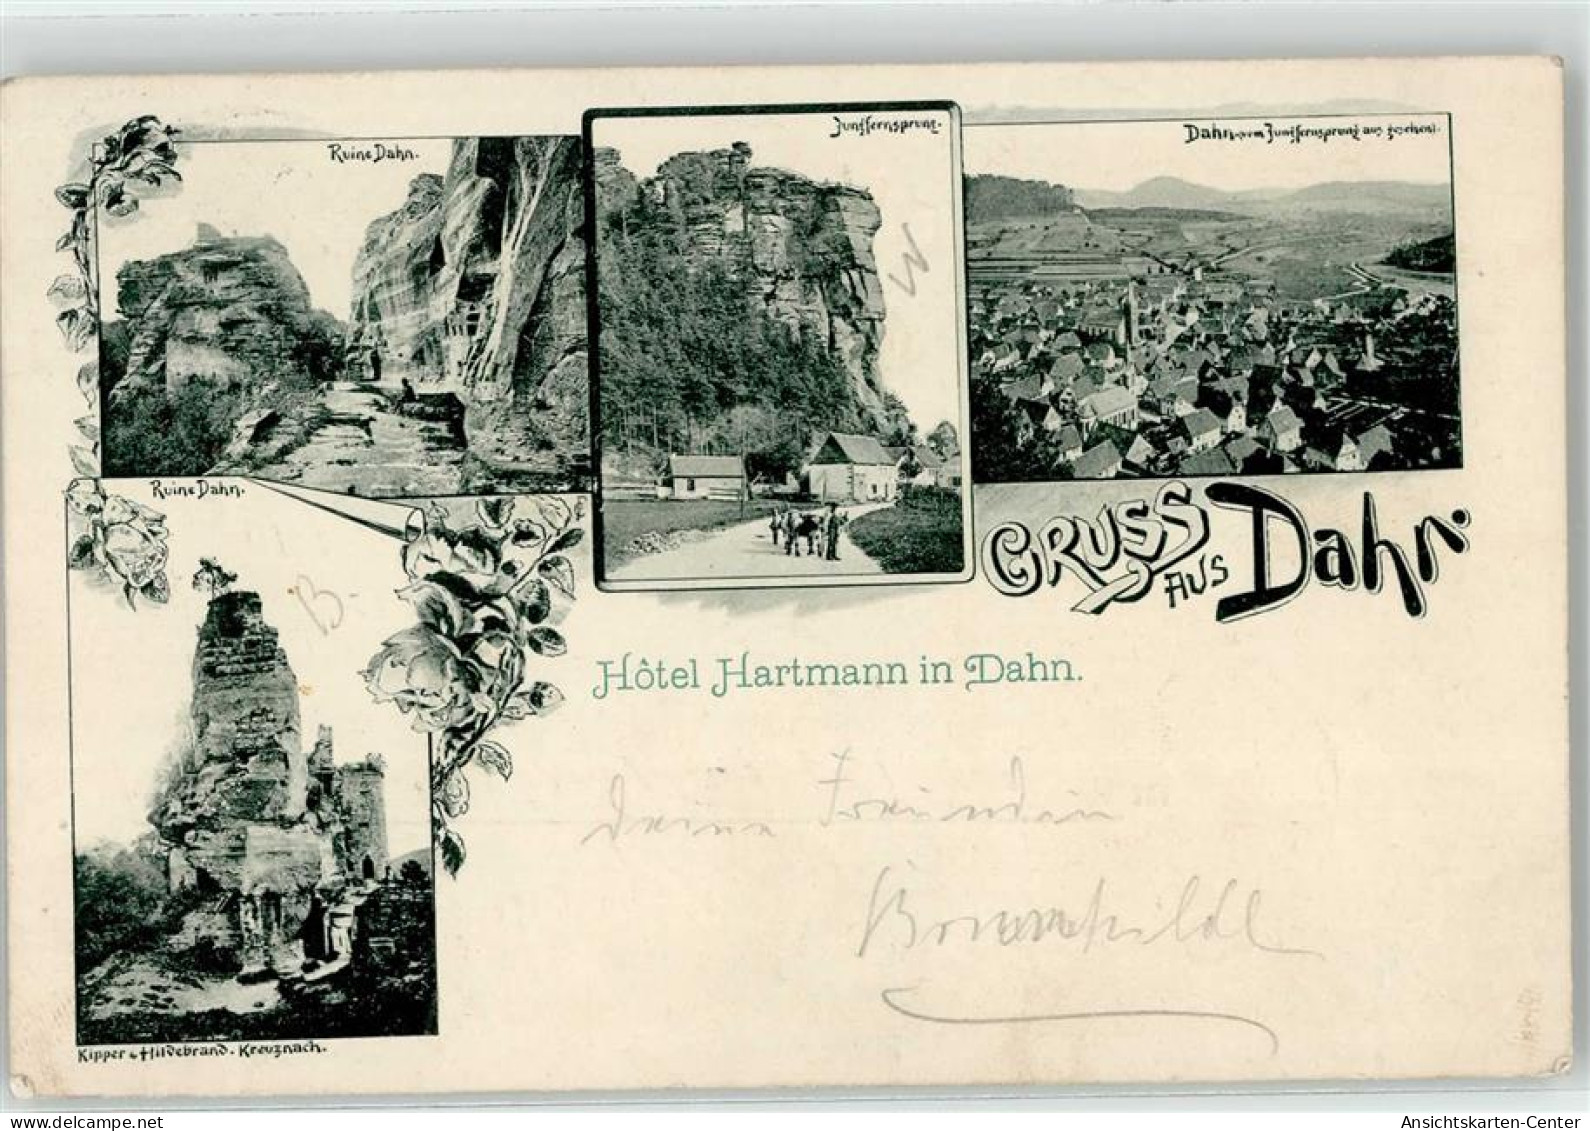 Ruine Dahn.
Jungfernsprung.
Dahn vom Jungfernsprung aus gesehen.
W
Ruine Dahn.
GRUSS
AUS Dahn.
B.
Hôtel Hartmann in Dahn.
Deine Freundin
Kipper & Hildebrand. Kreuznach.
Ansichtskarten-Center